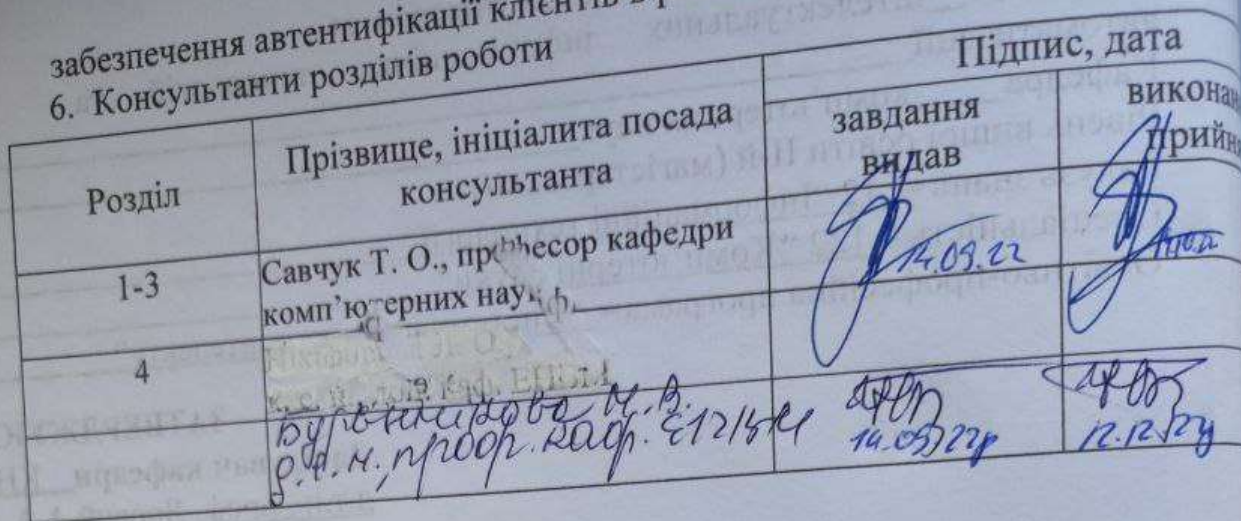 забезпечення автентифікації клієнтів в
6. Консультанти розділів роботи
Розділ
Прізвище, ініціалита посада
консультанта
Підпис, дата
завдання
видав
викона
прийня
1-3
Савчук Т. О., професор кафедри
комп'ютерних наук
14.09.22
4
Буренніков Н. В.
д.е.н., проф. каф. ЕПВМ
14.09.22р
12.12.22р